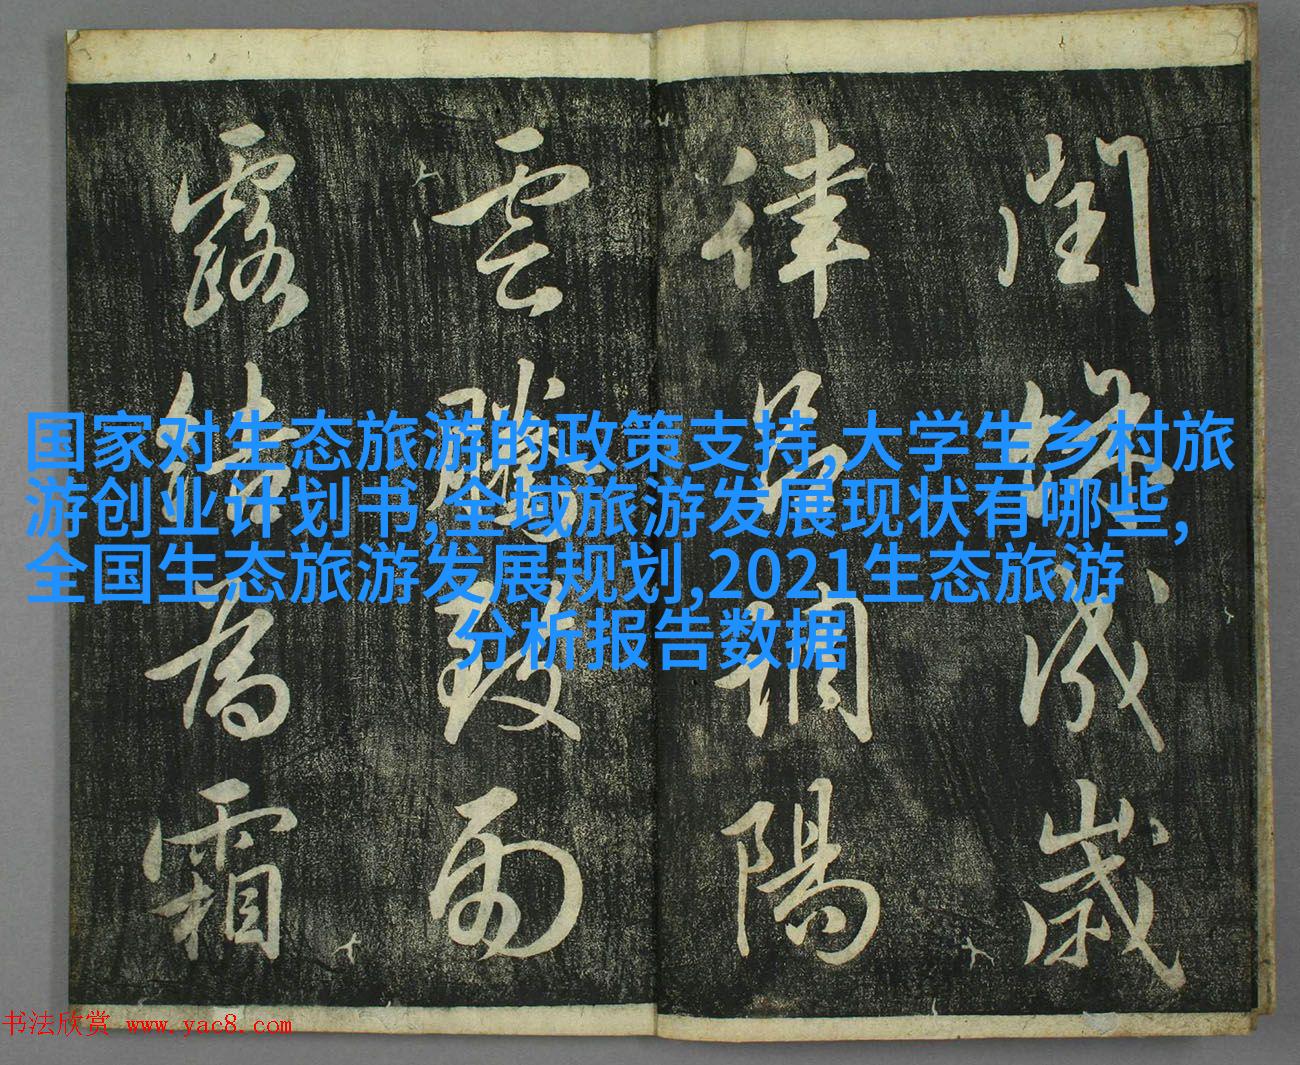 閏餘成歲
律呂調陽
雲騰致雨
露結為霜
国家对生态旅游的政策支持,大学生乡村旅
游创业计划书,全域旅游发展现状有哪些,
全国生态旅游发展规划,2021生态旅游
分析报告数据
书法欣赏 www.yac8.com